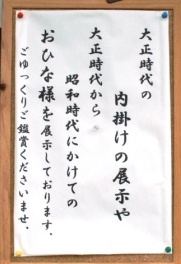 大正時代の
内掛けの展示や
大正時代から
昭和時代にかけての
おひな様を展示しております.
ごゆっくりご鑑賞くださいませ.